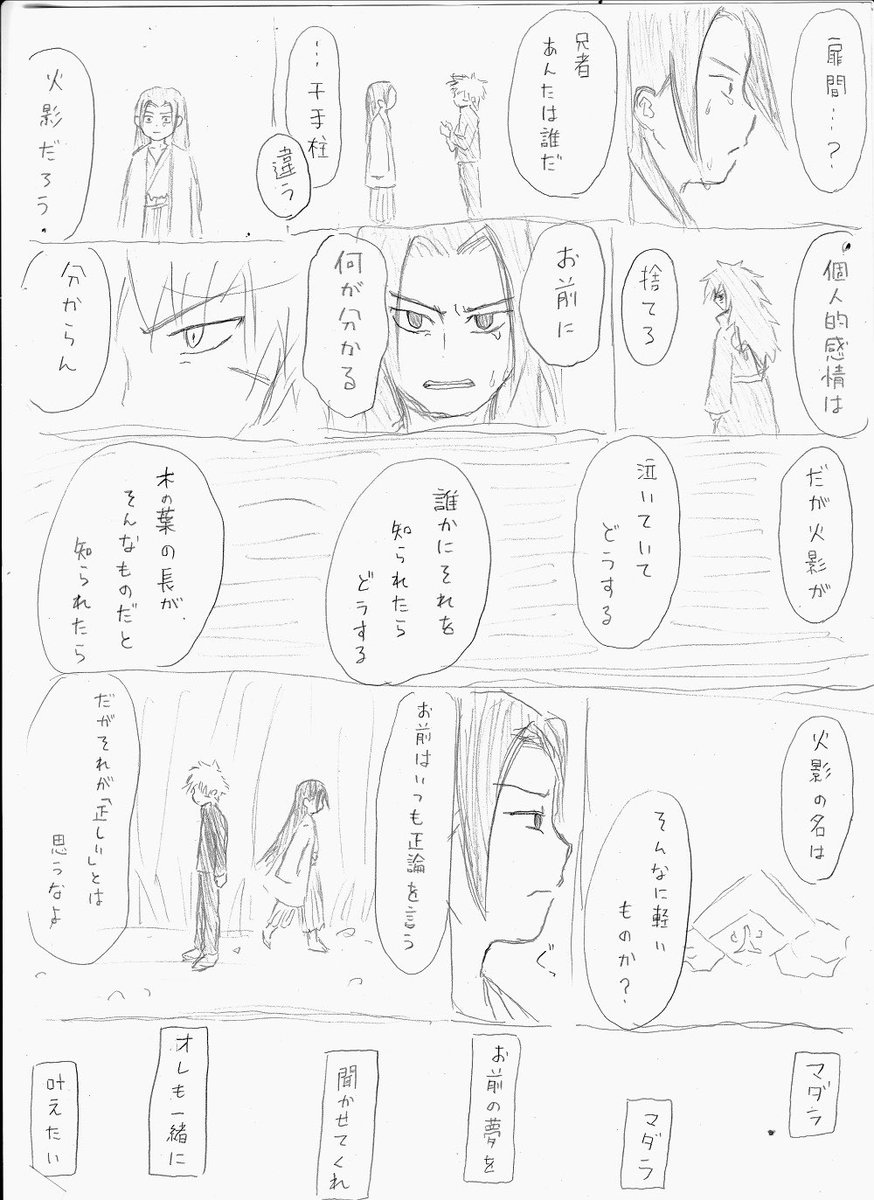 扉間…?
兄者
あんたは誰だ
…千手柱
違う
火影だろう。
個人的感情は
捨てろ
お前に
何が分かる
分からん
だが火影が
泣いていて
どうする
誰かにそれを
知られたら
どうする
木の葉の長が
そんなものだと
知られたら
火影の名は
そんなに軽い
ものか?
ぐっ
お前はいつも正論を言う
だがそれが「正しい」とは
思うなよ
マダラ
マダラ
お前の夢を
聞かせてくれ
オレも一緒に
叶えたい